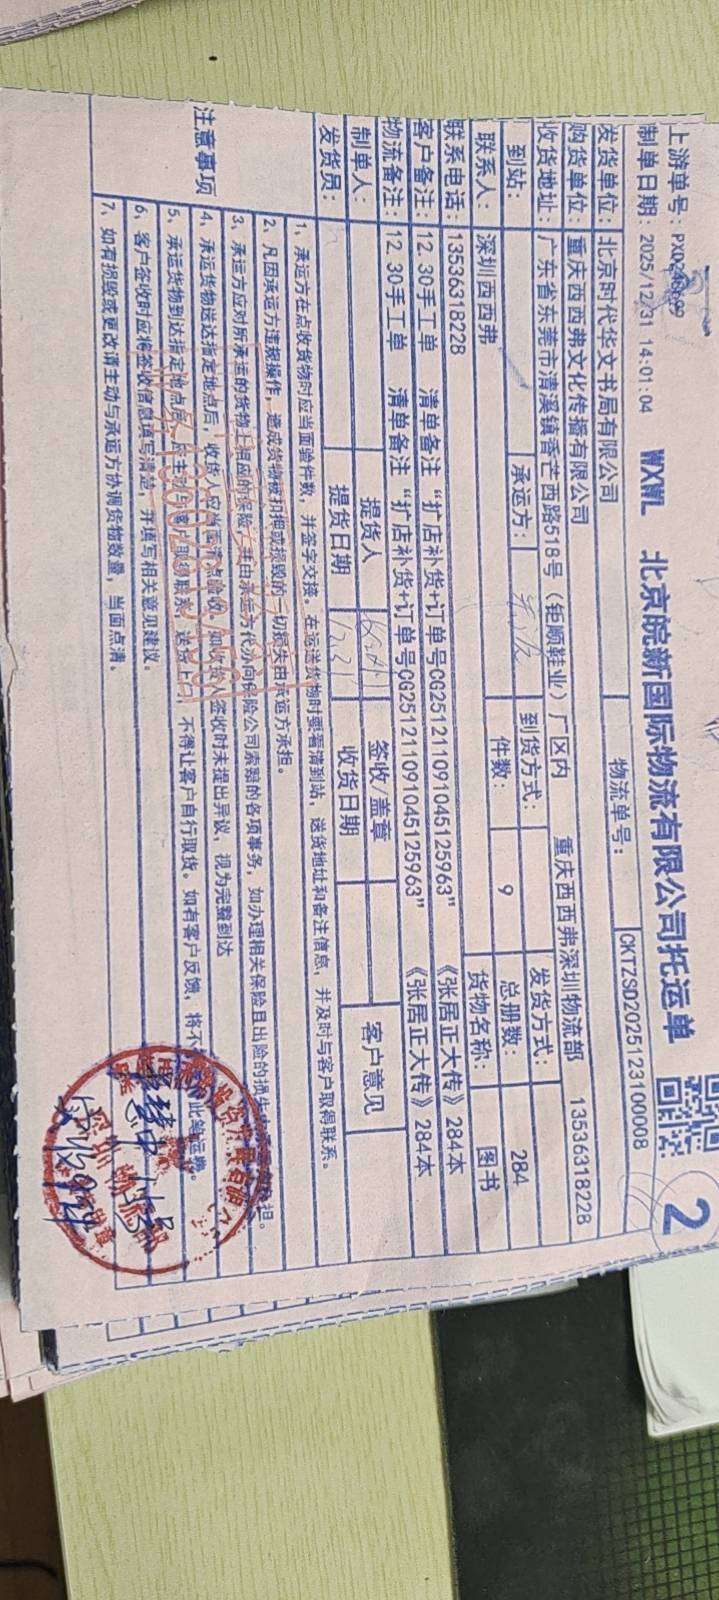 WXWL 北京皖新国际物流有限公司托运单
2
上游单号：
制单日期：2025/12/31 14:01:04
物流单号： CKTZSD2025123100008
发货单位：北京时代华文书局有限公司
购货单位：重庆西西弗文化传播有限公司
收货地址：广东省东莞市清溪镇香芒西路518号（钜顺鞋业）厂区内 重庆西西弗深圳物流部 13536318228
到站： 承运方： 到货方式： 发货方式：
联系人：深圳西西弗 件数： 9 总册数： 284
联系电话：13536318228 货物名称： 图书
客户备注：12.30手工单 清单备注“扩店补货+订单号CG251211091045125963” 《张居正大传》284本
物流备注：12.30手工单 清单备注“扩店补货+订单号CG251211091045125963” 《张居正大传》284本
制单人： 提货人 签收/盖章 客户意见
发货员： 提货日期 12.31 收货日期
注意事项
1、承运方在点收货物时应当面验件数，并签字交接。在运送货物时要看清到站，送货地址和备注信息，并及时与客户取得联系。
2、凡因承运方违规操作，造成货物被扣押或损毁的一切损失由承运方承担。
3、承运方应对所承运的货物上相应的保险，并由承运方代办向保险公司索赔的各项事务，如办理相关保险且出险的损失由 担。
4、承运货物送达指定地点后，收货人应当面清点验收。如收货人签收时未提出异议，视为完整到达
5、承运货物到达指定地点后，应主动与客户取得联系，送货上门，不得让客户自行取货。如有客户反馈，将不 此笔运费。
6、客户签收时应将签收信息填写清楚，并填写相关意见建议。
7、如有损毁或更改请主动与承运方协调货物数量，当面点清。